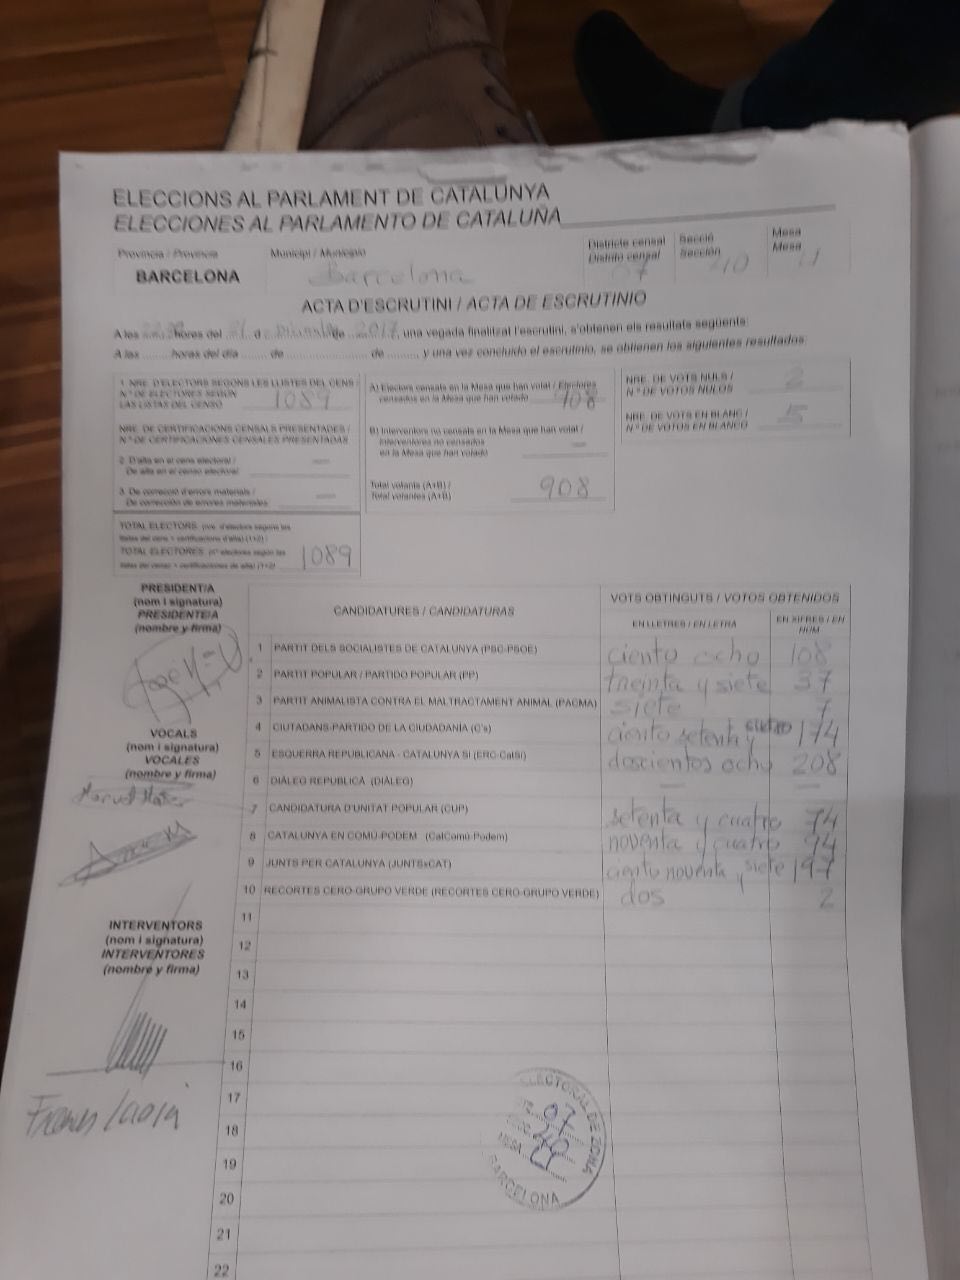 ELECCIONS AL PARLAMENT DE CATALUNYA
ELECCIONES AL PARLAMENTO DE CATALUÑA
Provincia / Provincia
Municipi / Municipio
Districte censal
Distrito censal
Secció
Sección
Mesa
Mesa
BARCELONA
Barcelona
07
40
U
ACTA D'ESCRUTINI / ACTA DE ESCRUTINIO
A les hores del 21 d de 2017, una vegada finalitzat l'escrutini, s'obtenen els resultats següents:
A las ........ horas del día ........ de ........ de ........, y una vez concluido el escrutinio, se obtienen los siguientes resultados:
1. NRE. D'ELECTORS SEGONS LES LLISTES DEL CENS /
N.º DE ELECTORES SEGÚN
LAS LISTAS DEL CENSO
1089
NRE. DE CERTIFICACIONS CENSALS PRESENTADES /
N.º DE CERTIFICACIONES CENSALES PRESENTADAS
2. D'alta en el cens electoral /
De alta en el censo electoral
—
3. De correcció d'errors materials /
De corrección de errores materiales
—
TOTAL ELECTORS: (nre. d'electors segons les
llistes del cens + certificacions d'alta) (1+2) /
TOTAL ELECTORES: (nº electores según las
listas del censo + certificaciones de alta) (1+2)
1089
A) Electors censats en la Mesa que han votat / Electores
censados en la Mesa que han votado
908
B) Interventors no censats en la Mesa que han votat /
Interventores no censados
en la Mesa que han votado
—
Total votants (A+B) /
Total votantes (A+B)
908
NRE. DE VOTS NULS /
N.º DE VOTOS NULOS
2
NRE. DE VOTS EN BLANC /
N.º DE VOTOS EN BLANCO
5
PRESIDENT/A
(nom i signatura)
PRESIDENTE/A
(nombre y firma)
VOCALS
(nom i signatura)
VOCALES
(nombre y firma)
INTERVENTORS
(nom i signatura)
INTERVENTORES
(nombre y firma)
CANDIDATURES / CANDIDATURAS
VOTS OBTINGUTS / VOTOS OBTENIDOS
EN LLETRES / EN LETRA
EN XIFRES / EN NÚM
1 PARTIT DELS SOCIALISTES DE CATALUNYA (PSC-PSOE) ciento ocho 108
2 PARTIT POPULAR / PARTIDO POPULAR (PP) treinta y siete 37
3 PARTIT ANIMALISTA CONTRA EL MALTRACTAMENT ANIMAL (PACMA) siete 7
4 CIUTADANS-PARTIDO DE LA CIUDADANÍA (C's) ciento setenta y cuatro 174
5 ESQUERRA REPUBLICANA - CATALUNYA SÍ (ERC-CatSí) doscientos ocho 208
6 DIÀLEG REPUBLICÀ (DIÀLEG) — —
7 CANDIDATURA D'UNITAT POPULAR (CUP) setenta y cuatro 74
8 CATALUNYA EN COMÚ-PODEM (CatComú-Podem) noventa y cuatro 94
9 JUNTS PER CATALUNYA (JUNTSxCAT) ciento noventa y siete 197
10 RECORTES CERO-GRUPO VERDE (RECORTES CERO-GRUPO VERDE) dos 2
11
12
13
14
15
16
17
18
19
20
21
22
ELECTORAL DE ZONA
07
40
MESA U
BARCELONA